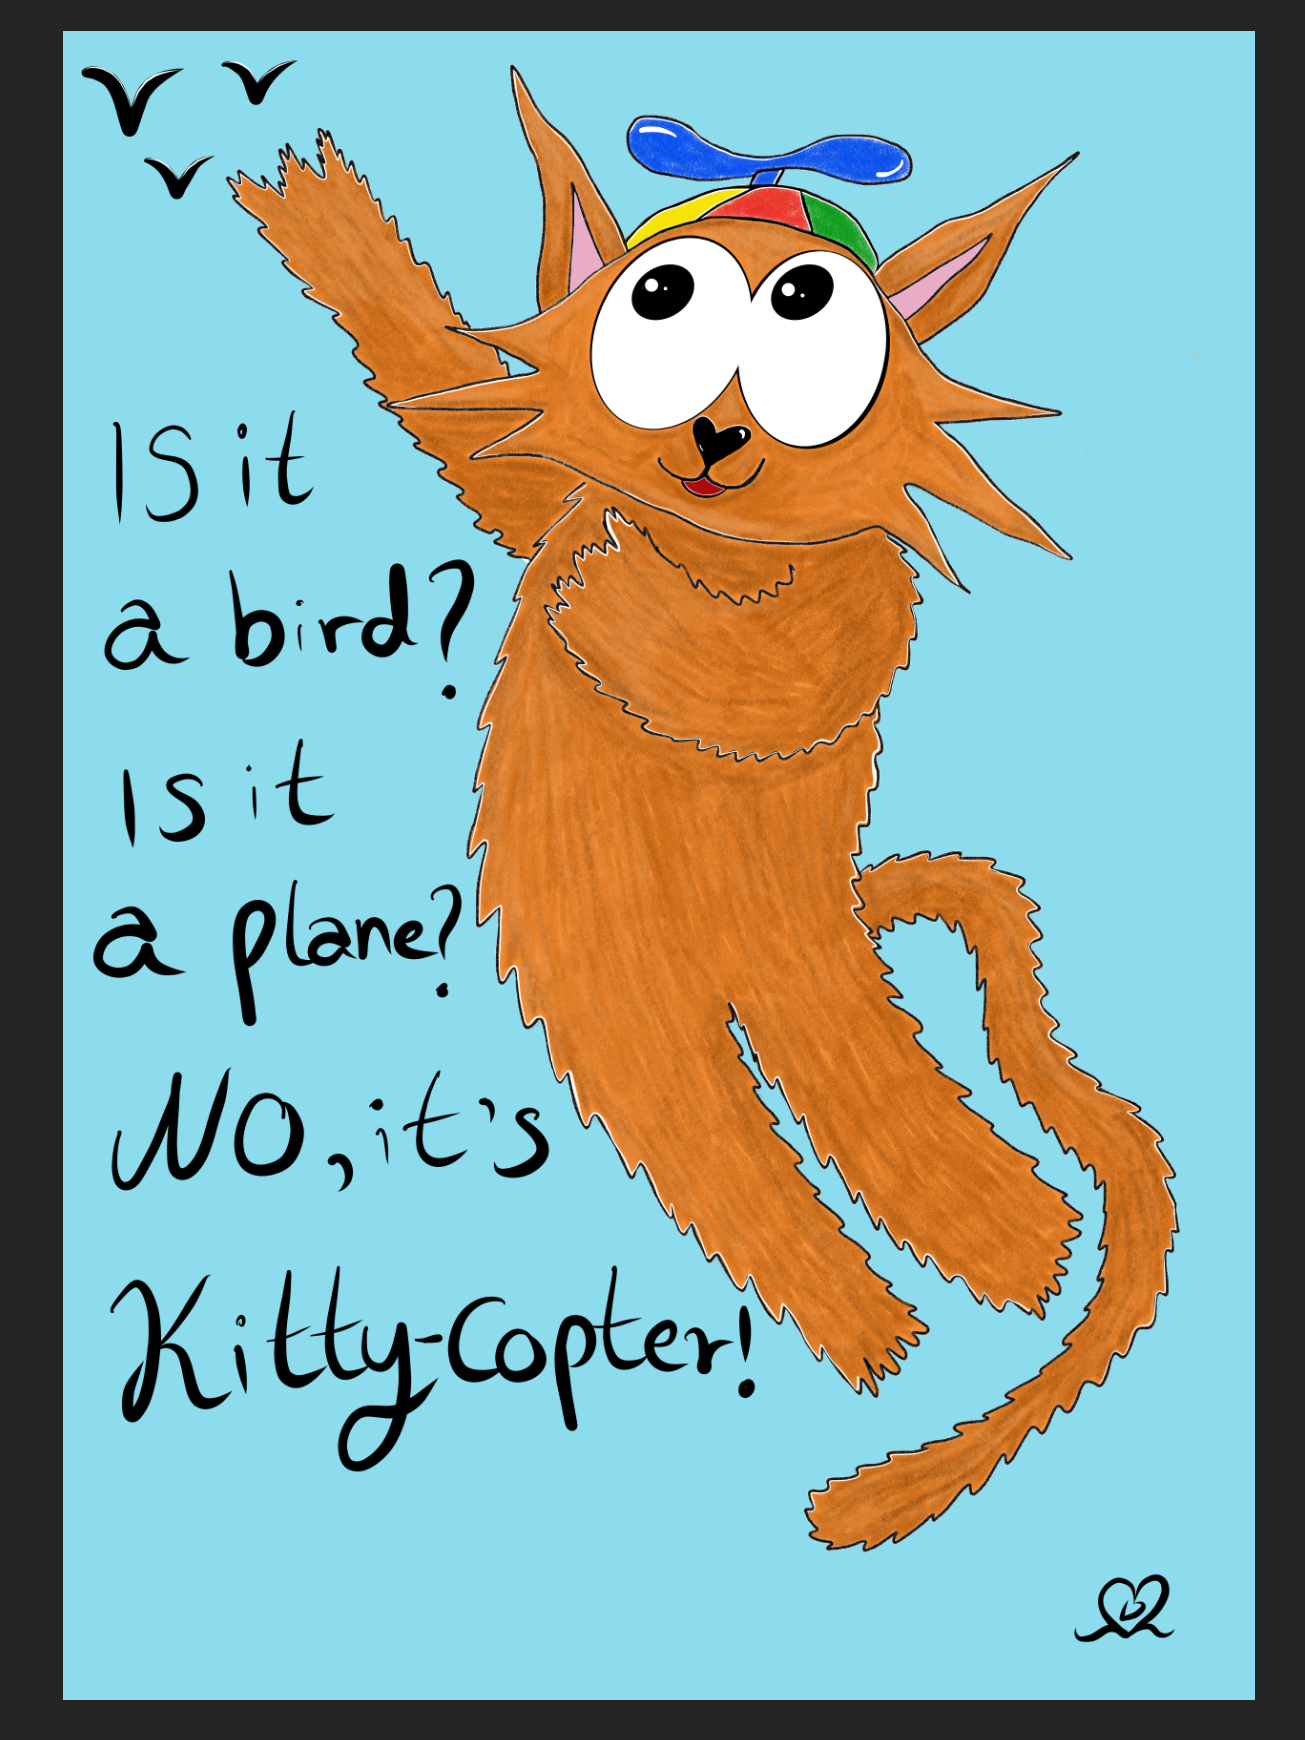 Is it
a bird?
Is it
a plane?
NO, it's
Kitty-Copter!